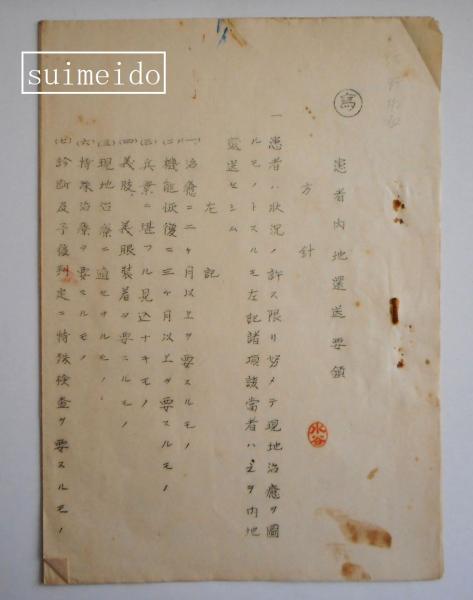 suimeido
寫
患者内地還送要領
方針
一 患者ハ狀況ノ許ス限リ努メテ現地治癒ヲ圖
ルモノトスルモ左記諸項該當者ハ之ヲ内地
還送セシム
左記
(一) 治癒ニ二ヶ月以上ヲ要スルモノ
(二) 機能恢復ニ三ヶ月以上ヲ要スルモノ
(三) 兵業ニ堪フル見込ナキモノ
(四) 義肢、義眼裝着ヲ要スルモノ
(五) 現地治療ニ適セサルモノ
(六) 特殊治療ヲ要スルモノ
(七) 診断及予後判定ニ特殊檢査ヲ要スルモノ
水谷